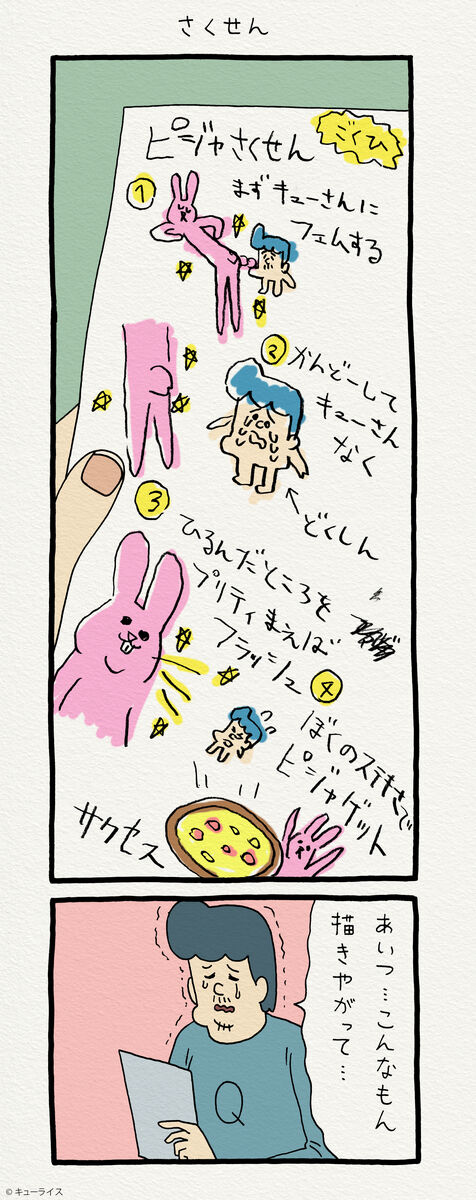 さくせん
ごくひ
ピジャさくせん
①
まずキューさんに
フェムする
②
かんどーして
キューさん
なく
どくしん
③
ひるんだところを
プリティまえば
フラッシュ
④
ぼくのステキさで
ピジャゲット
サクセス
あいつ…こんなもん
描きやがって…
Q
© キューライス